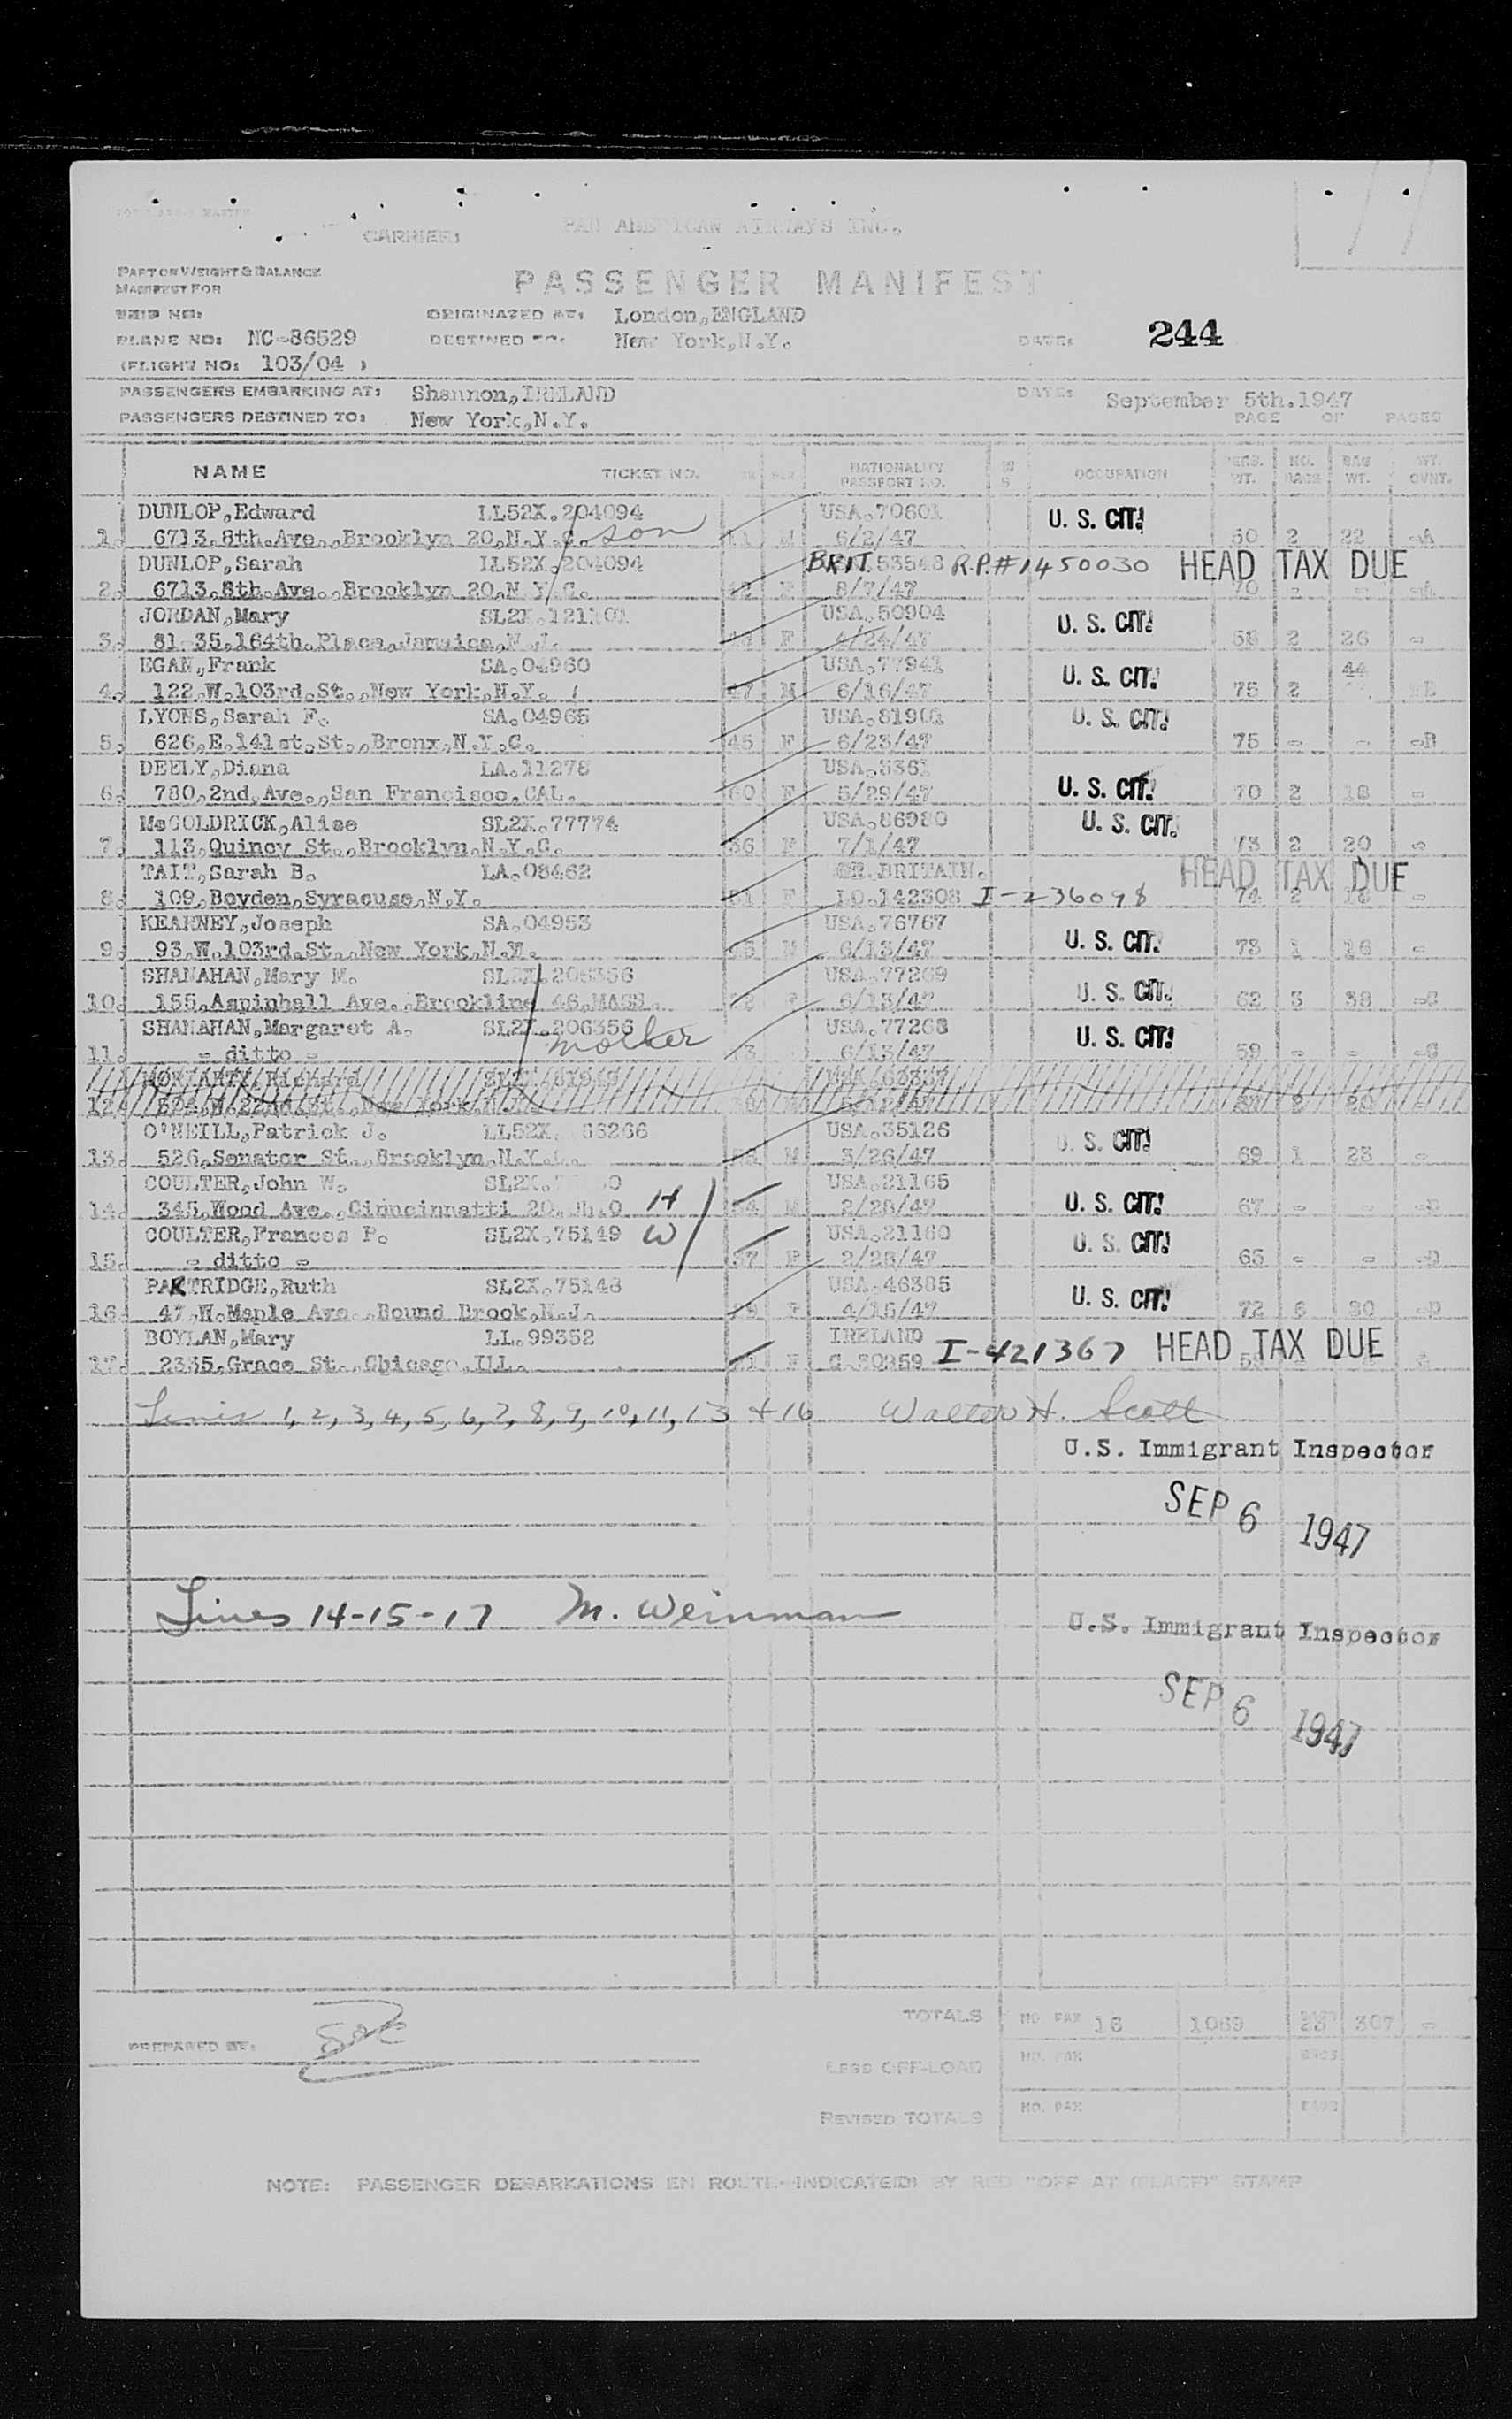 CARRIER: PAN AMERICAN AIRWAYS INC.
PART OF WEIGHT & BALANCE
MANIFEST FOR
PASSENGER MANIFEST
TRIP NO: ORIGINATED AT: London,ENGLAND
PLANE NO: NC-86529 DESTINED TO: New York,N.Y. DATE: 244
(FLIGHT NO: 103/04 )
PASSENGERS EMBARKING AT: Shannon,IRELAND DATE: September 5th.1947
PASSENGERS DESTINED TO: New York,N.Y. PAGE OF PAGES
NAME TICKET NO. NATIONALITY PASSPORT NO. OCCUPATION PERS. WT. NO. BAGS BAG WT. WT. OVNT.
DUNLOP,Edward LL52X.204094 USA.70601 U. S. CIT!
1. 6713,8th.Ave.,Brooklyn 20,N.Y.C. son M 6/2/47 60 2 22 -A
DUNLOP,Sarah LL52X.204094 BRIT.53548 R.P.#1450030 HEAD TAX DUE
2. 6713,8th.Ave.,Brooklyn 20,N.Y.C. F 8/7/47 70 - - -A
JORDAN,Mary SL2X.121101 USA.50904 U. S. CIT!
3. 81-35,164th.Place,Jamaica,N.J. F 4/24/47 58 2 26 -
EGAN,Frank SA.04960 USA.77941 U. S. CIT! 44
4. 122,W.103rd.St.,New York,N.Y. 47 M 6/16/47 75 2
LYONS,Sarah F. SA.04965 USA.81901 U. S. CIT!
5. 626,E.141st.St.,Bronx,N.Y.C. 45 F 6/23/47 75 - - -B
DEELY,Diana LA.11278 USA.8361
6. 780,2nd,Ave.,San Francisco,CAL. 60 F 5/29/47 U. S. CIT! 70 2 18 -
McGOLDRICK,Alice SL2X.77774 USA.86980 U. S. CIT.
7. 113,Quincy St.,Brooklyn,N.Y.C. 36 F 7/1/47 73 2 20 -
TAIT,Sarah B. LA.08462 GR.BRITAIN. HEAD TAX DUE
8. 109,Boyden,Syracuse,N.Y. 51 F LO.142308 I-236098 74 2 18 -
KEARNEY,Joseph SA.04953 USA.76767
9. 93,W.103rd.St.,New York,N.Y. M 6/13/47 U. S. CIT! 73 1 16 -
SHANAHAN,Mary M. SL2X.206356 USA.77269
10. 155,Aspinhall Ave.,Brookline 46,MASS. F 6/13/47 U. S. CIT! 62 3 38 -C
SHANAHAN,Margaret A. SL2X.206356 mother USA.77268 U. S. CIT!
11. - ditto - 6/13/47 59 - - -C
12.
O'NEILL,Patrick J. LL52X. 66266 USA.35126 U. S. CIT!
13. 526,Senator St.,Brooklyn,N.Y. M 3/26/47 69 1 23 -
COULTER,John W. SL2X. USA.21165
14. 345,Wood Ave.,Cinncinnatti 20, H 54 M 2/28/47 U. S. CIT! 67 - - -D
COULTER,Frances P. SL2X.75149 W USA.21160 U. S. CIT!
15. - ditto - 37 F 2/28/47 65 - - -D
PARTRIDGE,Ruth SL2X.75148 USA.46385 U. S. CIT!
16. 47,W.Maple Ave.,Bound Brook,N.J. F 4/15/47 72 6 80 -D
BOYLAN,Mary LL.99352 IRELAND HEAD TAX DUE
17. 2335,Grace St.,Chicago,ILL. F C.30859 I-421367
Lines 1, 2, 3, 4, 5, 6, 7, 8, 9, 10, 11, 13 + 16 Walter H. Scott
U.S. Immigrant Inspector
SEP 6 1947
Lines 14-15-17 M. Weinman
U.S. Immigrant Inspector
SEP 6 1947
TOTALS NO. PAX 16 1069 23 307 -
PREPARED BY:
LESS OFF-LOAD NO. PAX BAGS
REVISED TOTALS NO. PAX BAGS
NOTE: PASSENGER DEBARKATIONS EN ROUTE-INDICATE(D) BY RED "OFF AT (PLACE)" STAMP